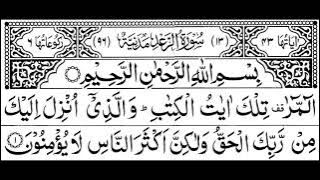 اٰیَاتُهَا ٤٣ (١٣) سُوْرَةُ الرَّعْدِ مَدَنِیَّةٌ (٩٦) رُکُوْعَاتُهَا ٦
بِسْمِ اللّٰهِ الرَّحْمٰنِ الرَّحِیْمِ
الٓمّٓرٰ قف تِلْكَ اٰیٰتُ الْكِتٰبِ ؕ وَالَّذِیْۤ اُنْزِلَ اِلَیْكَ
مِنْ رَّبِّكَ الْحَقُّ وَلٰكِنَّ اَكْثَرَ النَّاسِ لَا یُؤْمِنُوْنَ ۝۱